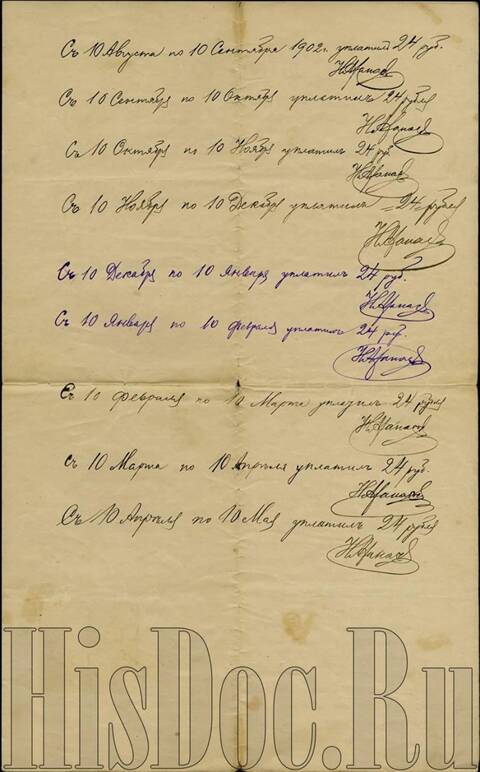 Съ 10 Августа по 10 Сентября 1902 г. уплатилъ 24 руб.
Н. Афанасьев
Съ 10 Сентября по 10 Октября уплатилъ 24 рубля
Н. Афанасьев
Съ 10 Октября по 10 Ноября уплатилъ 24 руб
Н. Афанасьев
Съ 10 Ноября по 10 Декабря уплатилъ =24= рубля
Н. Афанасьев
Съ 10 Декабря по 10 Января уплатилъ 24 руб.
Н. Афанасьев
Съ 10 Января по 10 февраля уплатилъ 24 руб.
Н. Афанасьев
Съ 10 февраля по 10 Марта уплатилъ 24 рубля
Н. Афанасьев
Съ 10 Марта по 10 Апреля уплатилъ 24 руб.
Н. Афанасьев
Съ 10 Апреля по 10 Мая уплатилъ 24 рубля
Н. Афанасьев
HisDoc.Ru